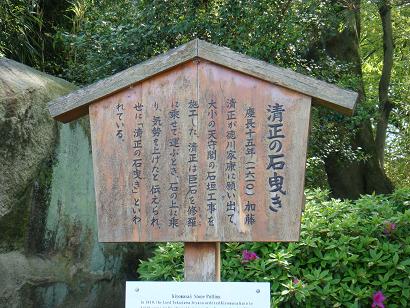 清正の石曳き
慶長十五年(一六一〇)加藤
清正が徳川家康に願い出て、
大小の天守閣の石垣工事を
施工した。清正は巨石を修羅
に乗せて運ぶとき、石の上に乗
り、気勢を上げたと伝えられ、
世に「清正の石曳き」といわ
れている。
Kiyomasa's Stone Pulling